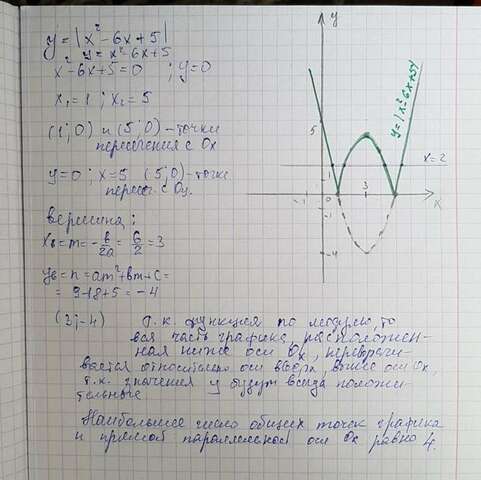 y = |x² - 6x + 5|
y = x² - 6x + 5
x² - 6x + 5 = 0 ; y = 0
x₁ = 1 ; x₂ = 5
(1; 0) и (5; 0) - точки
пересечения с Ox
y = 0 ; x = 5 (5; 0) - точка
перес. с Oy.
вершина:
x₀ = m = - b/2a = 6/2 = 3
y₀ = n = am² + bm + c =
= 9 - 18 + 5 = -4
(3; -4)
Т.к. функция по модулю, то
вся часть графика, расположен-
ная ниже оси Ox, перевора-чи-
вается относительно оси вверх, выше оси Ox,
т.к. значения y будут всегда положи-
тельные
Наибольшее число общих точек графика
и прямой параллельной оси Ox равно 4.
y
5
1
-1
0
1
3
x
-1
-4
x = 2
y = |x² - 6x + 5|